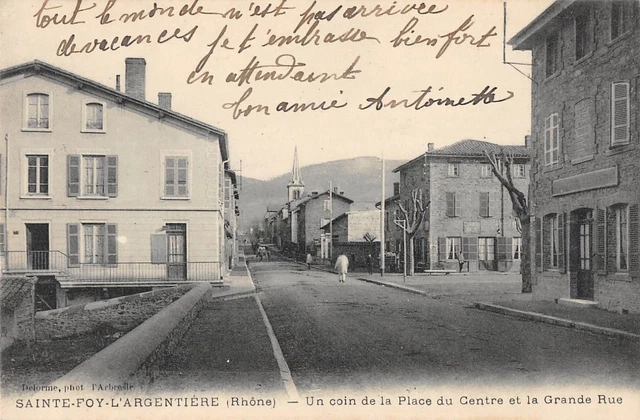 tout le monde n'est pas arrivée
de vacances je t'embrasse bien fort
en attendant
bon amie Antoinette
Delorme, phot. l'Arbresle
SAINTE-FOY-L'ARGENTIÈRE (Rhône) — Un coin de la Place du Centre et la Grande Rue